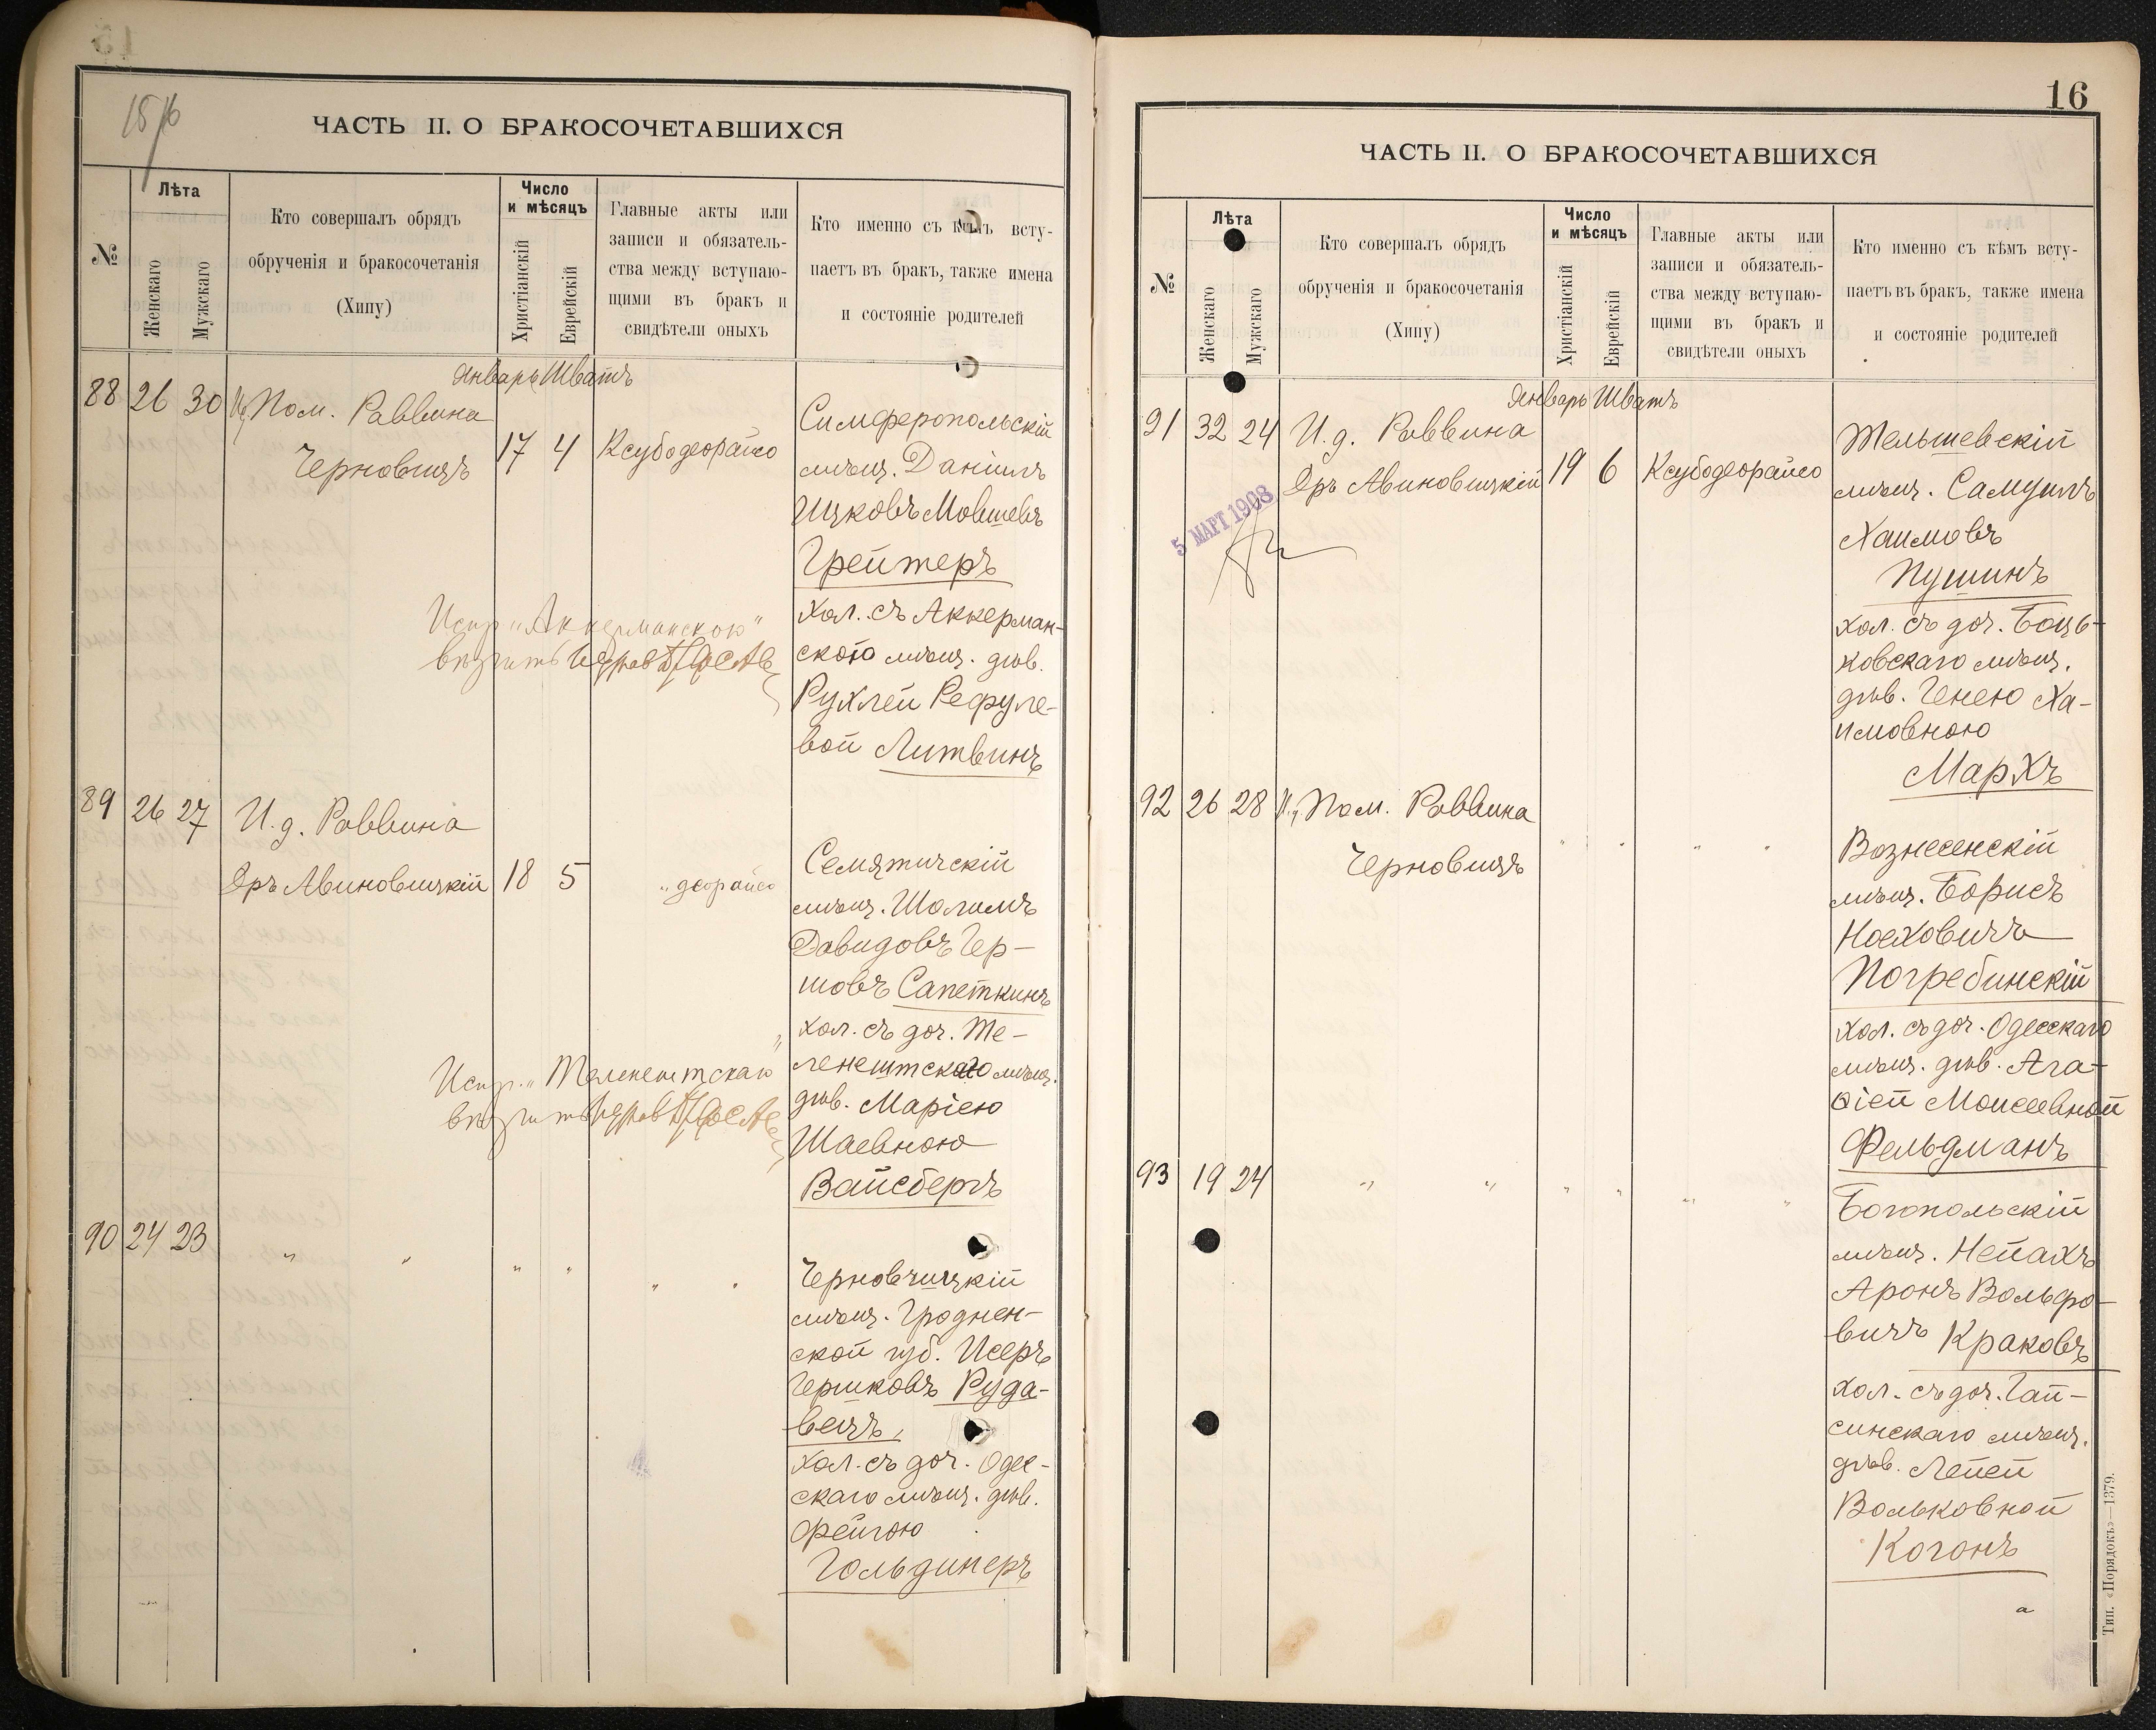 15/16
ЧАСТЬ II. О БРАКОСОЧЕТАВШИХСЯ
№
Лѣта
Женскаго
Мужскаго
Кто совершалъ обрядъ
обрученія и бракосочетанія
(Хипу)
Число
и мѣсяцъ
Христіанскій
Еврейскій
Главные акты или
записи и обязатель-
ства между вступаю-
щими въ бракъ и
свидѣтели оныхъ
Кто именно съ кѣмъ всту-
паетъ въ бракъ, также имена
и состояніе родителей
Январь Шватъ
88 26 30 Пом. Раввина
Черновицъ 17 4 Ксубодеорайсо
Симферопольскій
мѣщ. Даніилъ
Ицковъ Мовшевъ
Грейтеръ
хол. съ Аккерман-
скою мѣщ. дѣв.
Рухлей Рефуле-
вой Литвинъ
Испр. „Аккерманскою"
вѣрить
89 26 27 И.д. Раввина
Дръ Авиновицкій 18 5 „деорайсо
Семятичскій
мѣщ. Шолимъ
Давидовъ Гер-
шовъ Сапеткинъ
хол. съ доч. Те-
ленештскаго мѣщ.
дѣв. Маріею
Шаевною
Вайсбергъ
Испр. „Теленештскаю"
вѣрить
90 24 23 " " " " " "
Черновчицкій
мѣщ. Гроднен-
ской губ. Исеръ
Гершковъ Руда-
вецъ,
хол. съ доч. Одес-
скаго мѣщ. дѣв.
Фейгою
Гольдинеръ
16
ЧАСТЬ II. О БРАКОСОЧЕТАВШИХСЯ
№
Лѣта
Женскаго
Мужскаго
Кто совершалъ обрядъ
обрученія и бракосочетанія
(Хипу)
Число
и мѣсяцъ
Христіанскій
Еврейскій
Главные акты или
записи и обязатель-
ства между вступаю-
щими въ бракъ и
свидѣтели оныхъ
Кто именно съ кѣмъ всту-
паетъ въ бракъ, также имена
и состояніе родителей
Январь Шватъ
91 32 24 И.д. Раввина
Дръ Авиновицкій 19 6 Ксубодеорайсо
5 МАРТ 1908
Тельшевскій
мѣщ. Самуилъ
Хаимовъ
Пушинъ
хол. съ доч. Боць-
ковскаго мѣщ.
дѣв. Генею Ха-
имовною
Мархъ
92 26 28 Пом. Раввина
Черновицъ " " " "
Вознесенскій
мѣщ. Борисъ
Ноеховичъ
Погребинскій
хол. съ доч. Одесскаго
мѣщ. дѣв. Ага-
ѳіей Моисеевной
Фельдманъ
93 19 24 " " " " " "
Богопольскій
мѣщ. Непахъ
Аронъ Вольфо-
вичъ Краковъ
хол. съ доч. Гай-
синскаго мѣщ.
дѣв. Лейей
Вольковной
Когонъ
Тип. «Порядокъ»—1379.